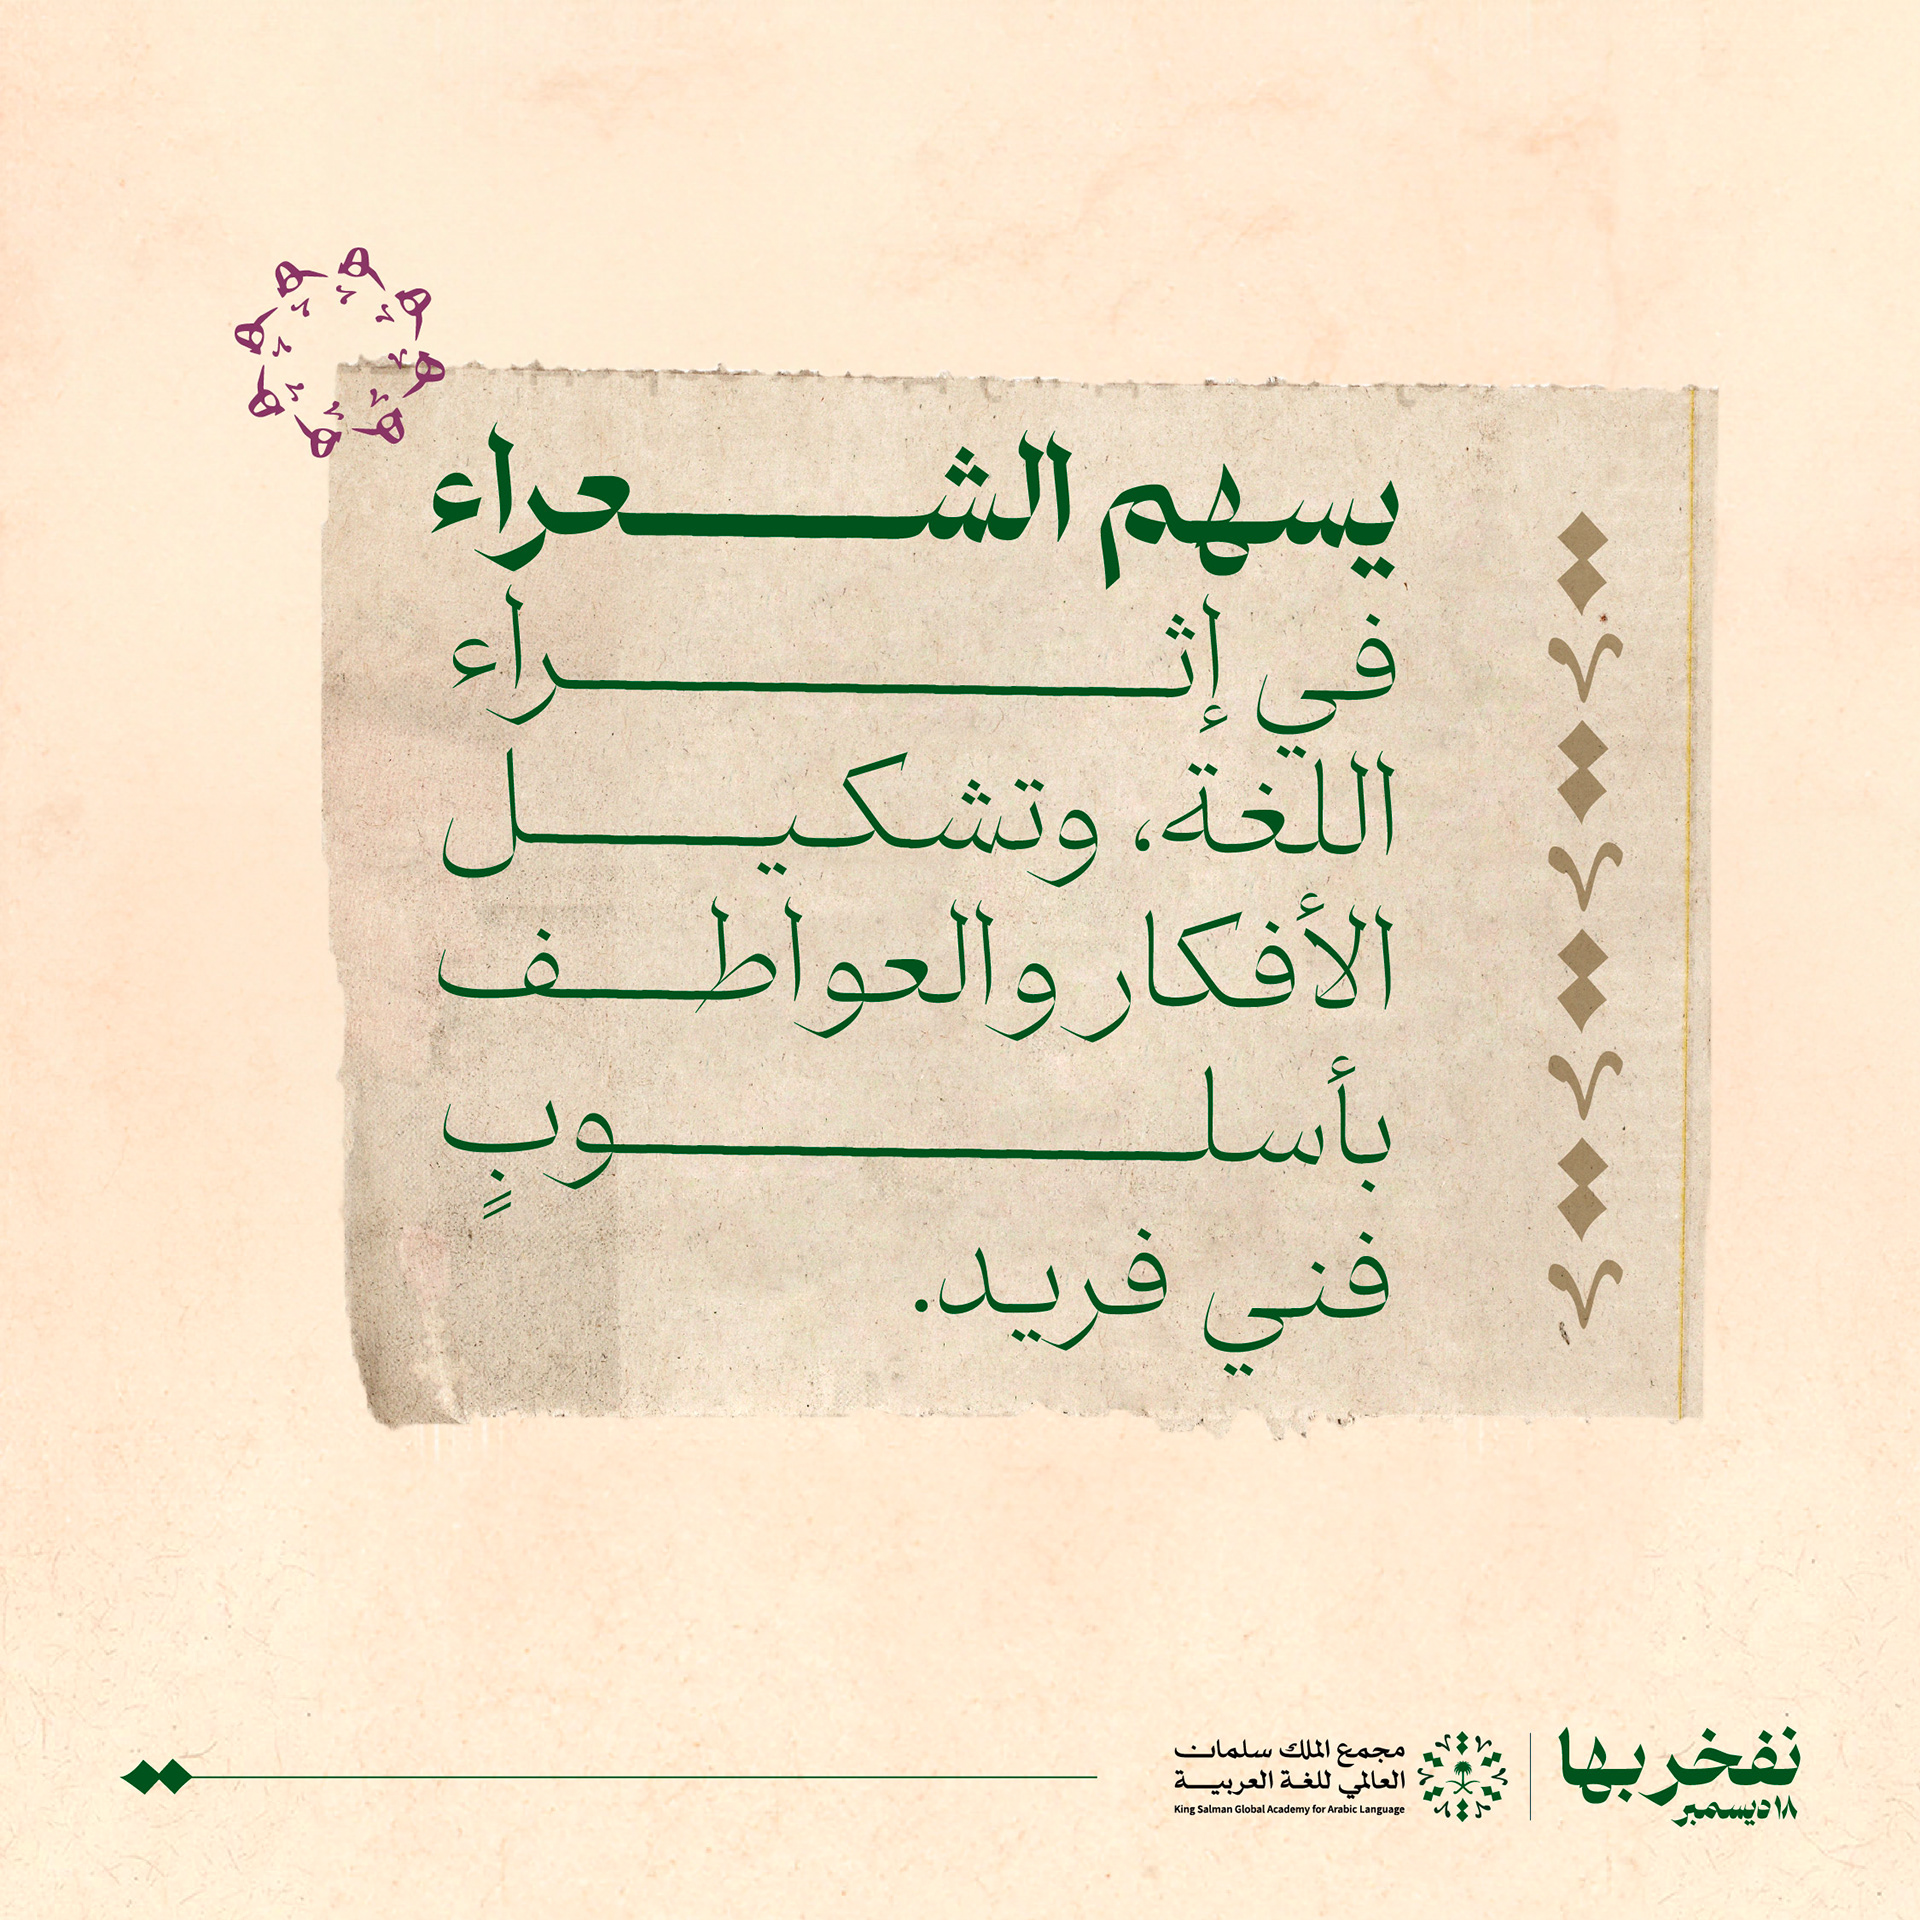 يسهم الشعراء
في إثراء
اللغة، وتشكيل
الأفكار والعواطف
بأسلوبٍ
فني فريد.
نفخر بها
١٨ ديسمبر
مجمع الملك سلمان
العالمي للغة العربية
King Salman Global Academy for Arabic Language